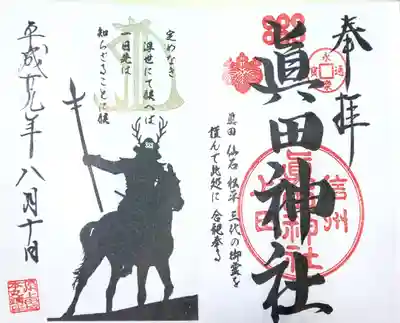 奉拝
永楽通寳
眞田神社
信州
上田
眞田神社
眞田 仙石 松平 三代の御霊を
謹んで此処に 合祀奉る
定めなき
浮世にて候へば
一日先は
知らざることに候
平成廿九年八月十日